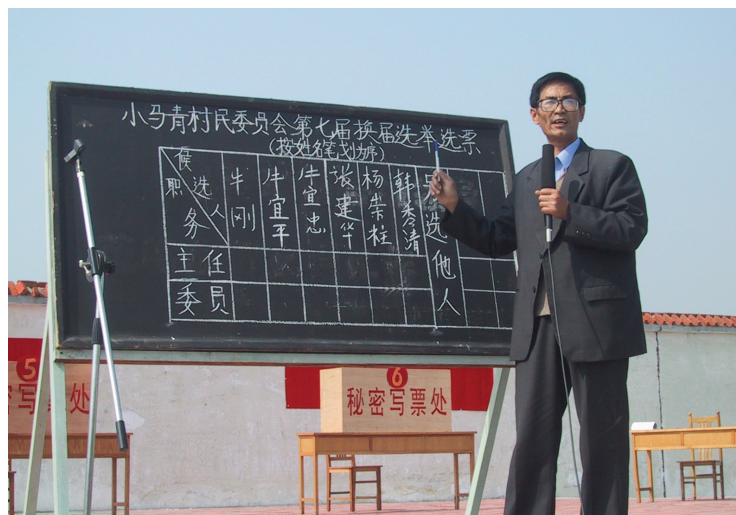 小马青村民委员会第七届换届选举选票
(按姓名笔划为序)
候选人
职务
牛刚
牛宜平
牛宜忠
张建华
杨崇柱
韩秀清
另选他人
主任
委员
5
秘密写票处
6
秘密写票处